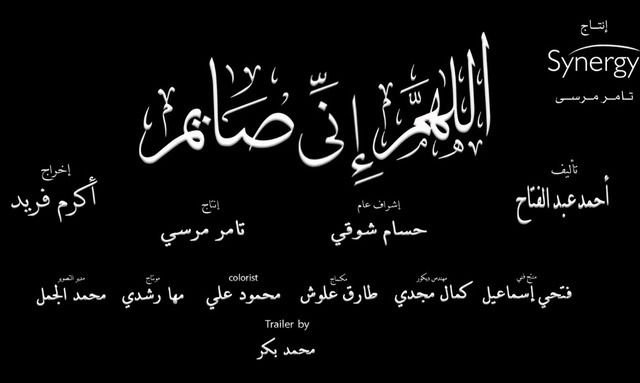 إنتاج
Synergy
تامر مرسى
اللهم إنّي صايم
تأليف
أحمد عبد الفتاح
إخراج
أكرم فريد
إشراف عام
حسام شوقي
إنتاج
تامر مرسي
منتج فني
فتحي إسماعيل
مهندس ديكور
كمال مجدي
مكساج
طارق علوش
colorist
محمود علي
مونتاج
مها رشدي
مدير التصوير
محمد الجمل
Trailer by
محمد بكر